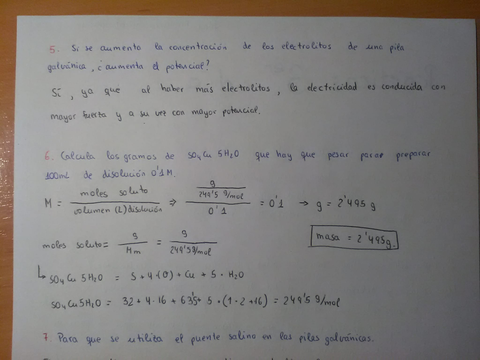 5. Si se aumenta la concentración de los electrolitos de una pila
galvánica, ¿aumenta el potencial?
Sí, ya que al haber más electrolitos, la electricidad es conducida con
mayor fuerza y a su vez con mayor potencial.
6. Calcula los gramos de SO4Cu 5H2O que hay que pesar para preparar
100mL de disolución 0'1 M.
M = moles soluto / volumen (L) disolución ⇒ g / 249'5 g/mol / 0'1 = 0'1 → g = 2'495 g
moles soluto = g / Mm = g / 249'5 g/mol
masa = 2'495 g.
↳ SO4Cu 5H2O = S + 4·(O) + Cu + 5·H2O
SO4Cu 5H2O = 32 + 4·16 + 63'5 + 5·(1·2+16) = 249'5 g/mol
7. Para que se utiliza el puente salino en las pilas galvánicas.